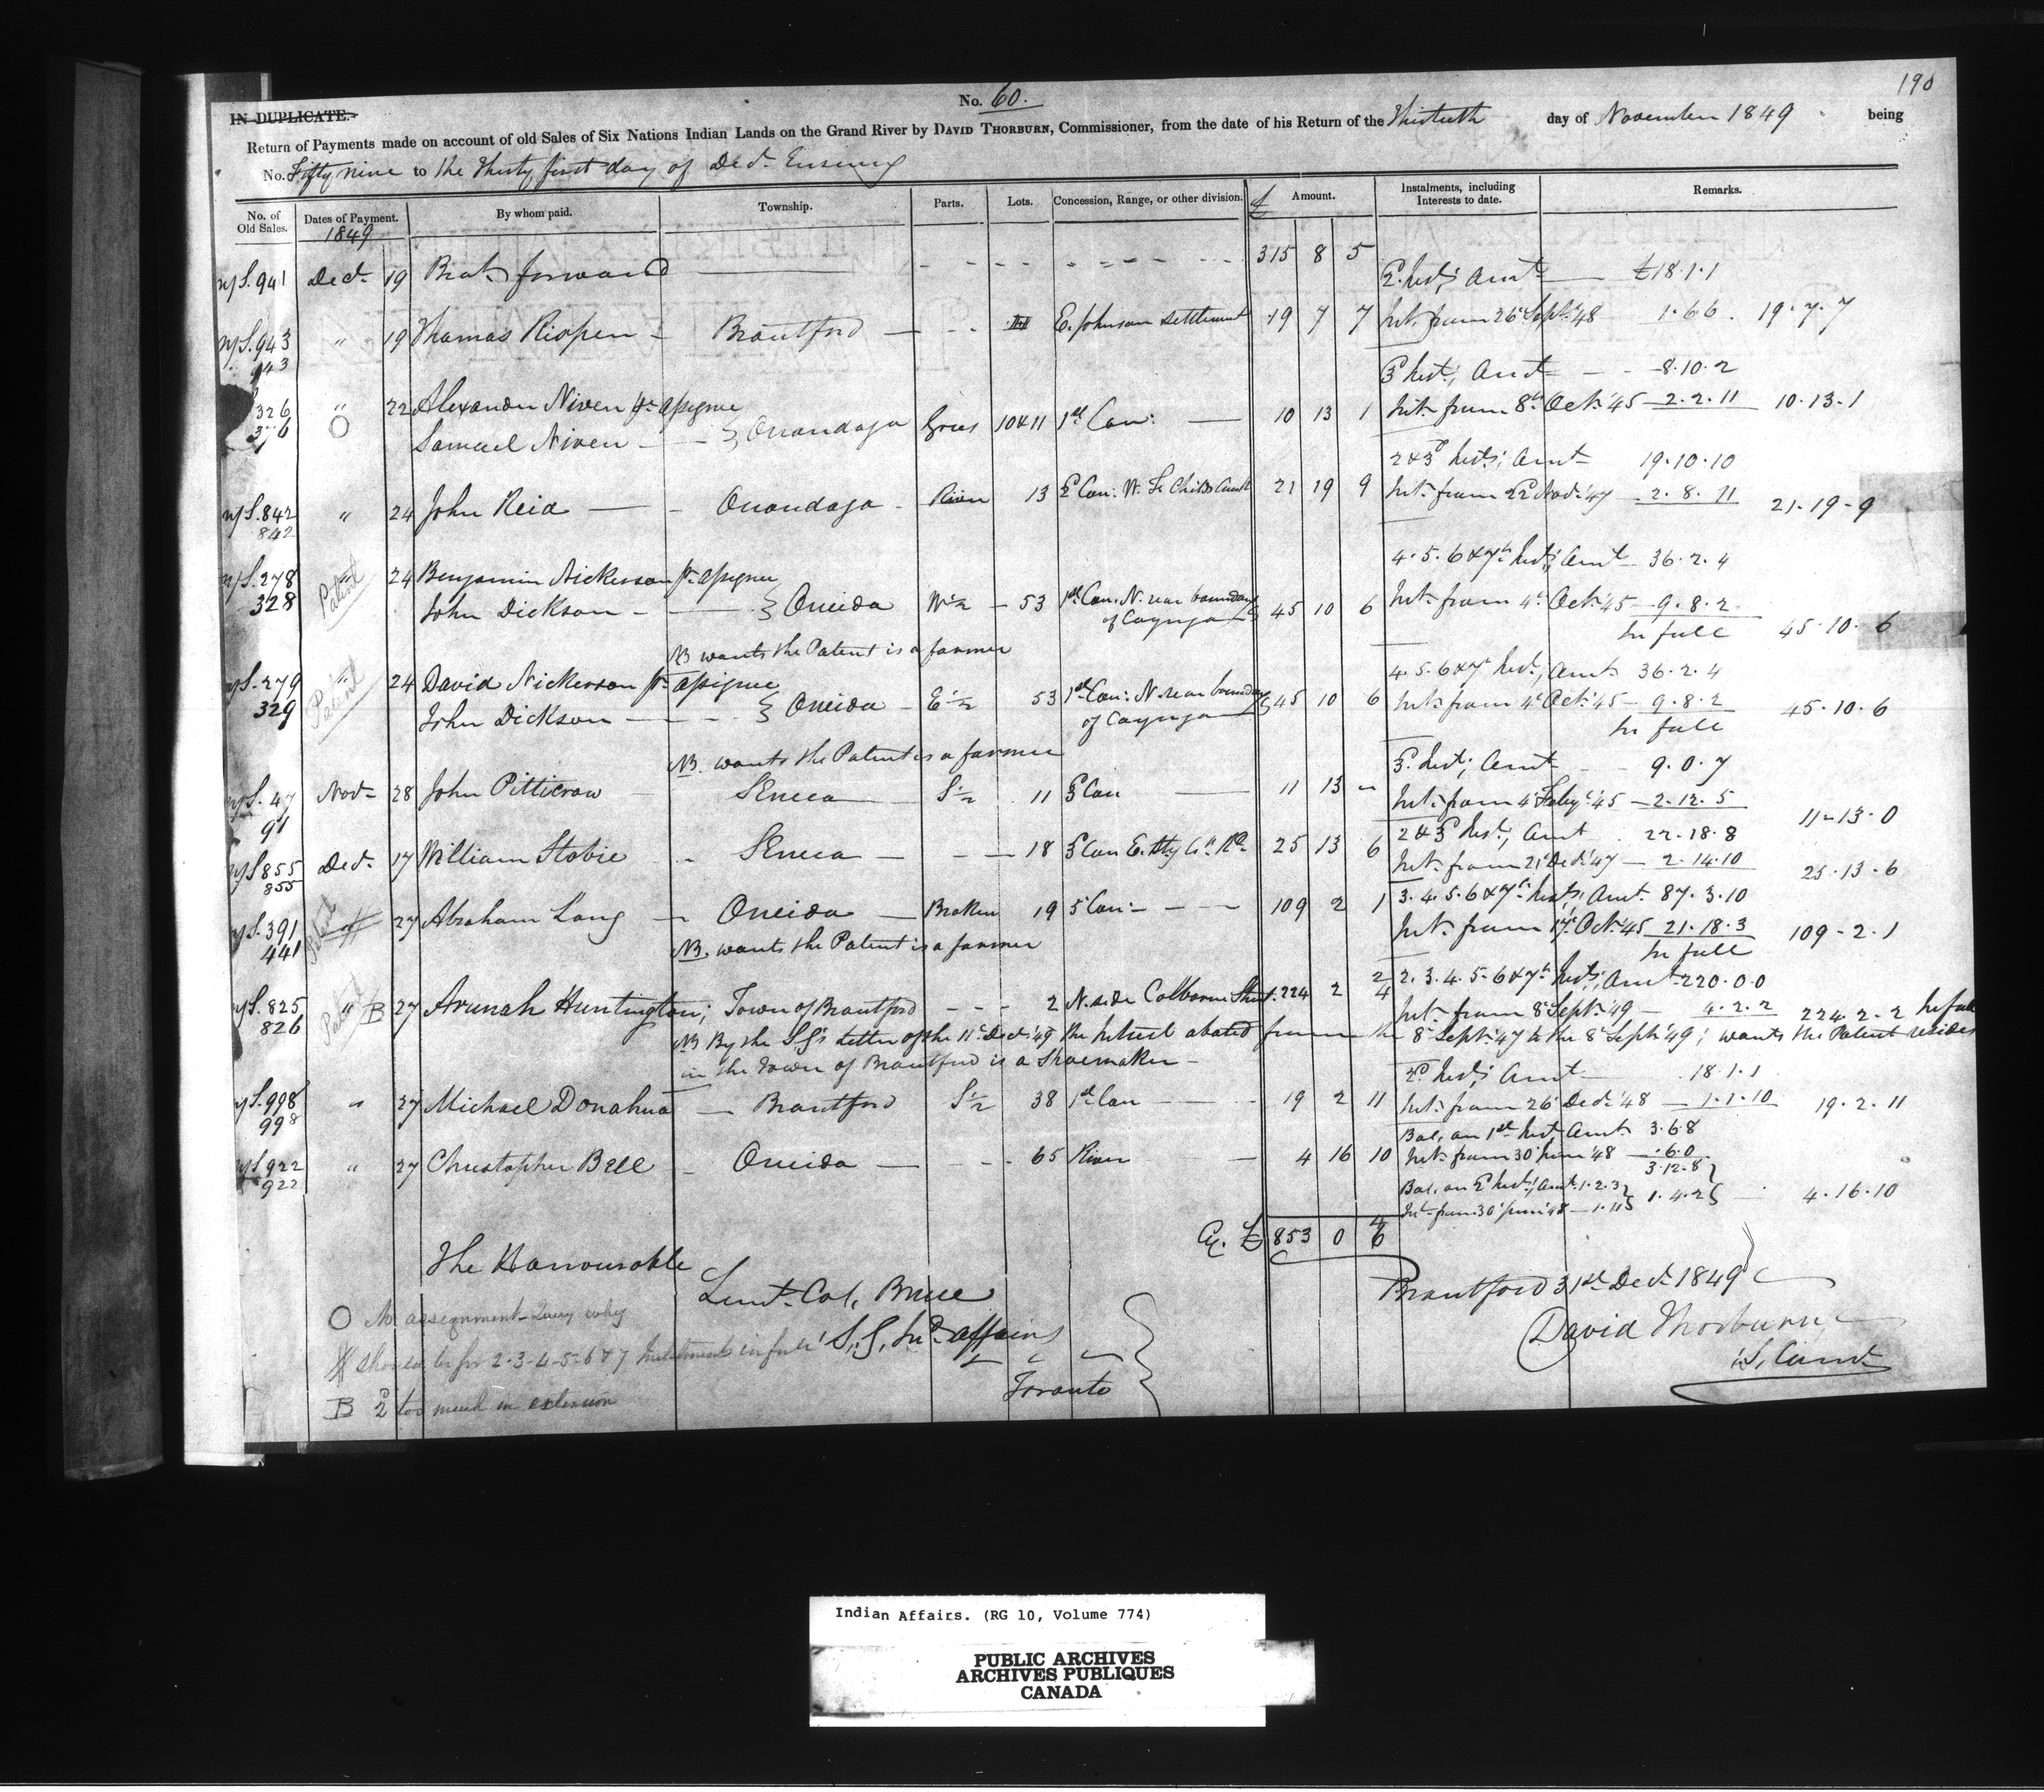 190
No. 60.
IN DUPLICATE.
Return of Payments made on account of old Sales of Six Nations Indian Lands on the Grand River by DAVID THORBURN, Commissioner, from the date of his Return of the Thirtieth day of November 1849 being
No. Fifty nine to the Thirty first day of Decr. Ensuing
No. of Old Sales. Dates of Payment. By whom paid. Township. Parts. Lots. Concession, Range, or other division. £ Amount. Instalments, including Interests to date. Remarks.
1849
S. 941 Decr. 19 Brot. forward 315 8 5
2d. Inst; Amt £18.1.1
S. 943 " 19 Thomas Rispen Brantford E. Johnson settlement 19 7 7 Int. from 26 Sept. '48 1.6.6 . 19.7.7
943
3d Inst; Amt 8.10.2
326 " 22 Alexander Niven pr. assignee
326 O Samuel Niven } Onondaga Gores 10 & 11 1st Con: 10 13 1 Int. from 8th Oct. '45 2.2.11 10.13.1
2 & 3d Inst; Amt 19.10.10
S. 842 " 24 John Reid Onondaga River 13 2d Con: 21 19 9 Int. from 22d Nov. '47 2.8.11 21-19-9
842
4.5.6 & 7th Inst; Amt 36.2.4
S. 278 Patent 24 Benjamin Nickerson pr. assignee
328 John Dickson } Oneida W 1/2 53 1st Con. N. near boundary of Cayuga 45 10 6 Int. from 4th Oct. '45 9.8.2
In full 45.10.6
NB wants the Patent is a farmer
S. 279 Patent 24 David Nickerson pr. assignee 4.5.6 & 7th Inst; Amt 36.2.4
329 John Dickson } Oneida E 1/2 53 1st Con: N. near boundary of Cayuga 45 10 6 Int. from 4th Oct. '45 9.8.2 45.10.6
In full
NB. wants the Patent is a farmer
3d. Inst; Amt 9.0.7
S. 47 Novr 28 John Pitticrow Seneca S 1/2 11 3d Con 11 13 " Int. from 4th Feby. '45 2.12.5 11-13.0
91
2 & 3d Inst; Amt 22.18.8
S. 855 Decr. 17 William Stobie Seneca 18 3d Con E. 25 13 6 Int. from 21 Decr. '47 2.14.10 25.13.6
855
3.4.5.6 & 7th Inst; Amt. 87.3.10
S. 391 Patent 27 Abraham Long Oneida Broken 19 5 Con: 109 2 1 Int. from 17th Oct. '45 21.18.3 109-2.1
441 In full
NB. wants the Patent is a farmer
2.3.4.5.6 & 7th Inst; Amt 220.0.0
S. 825 Patent " B 27 Arunah Huntington; Town of Brantford 2 N. side Colborne Street. 224 2 2 4 Int. from 8th Sept. '49 4.2.2 224.2.2 In full
826
NB By the SG's letter of the 11th Decr. '49 the Interest abated from the 8th Sept. '47 to the 8 Sept. '49; wants the Patent resides
in the Town of Brantford is a Shoemaker
2d. Inst; Amt 18.1.1
S. 998 " 27 Michael Donahua Brantford S 1/2 38 1st Con 19 2 11 Int. from 26 Decr. '48 1.1.10 19.2.11
998
Bal. on 1st Inst Amt. 3.6.8
S. 922 " 27 Christopher Bell Oneida 65 River 4 16 10 Int. from 30 June '48 .6.0
922 3.12.8
Bal. on 2d Inst; Amt. 1.2.3
Int. from 30 June '48 1.11 } 1.4.2 4.16.10
Cy. £ 853 0 6 4
The Honourable
Lieut. Col. Bruce
S. G. Ind. Affairs
Toronto
Brantford 31st Decr. 1849
David Thorburn
S. Comr.
O No assignment - Query why
should be for 2-3-4-5-6 & 7 Instalments in full
B 2d too much in extension
Indian Affairs. (RG 10, Volume 774)
PUBLIC ARCHIVES
ARCHIVES PUBLIQUES
CANADA